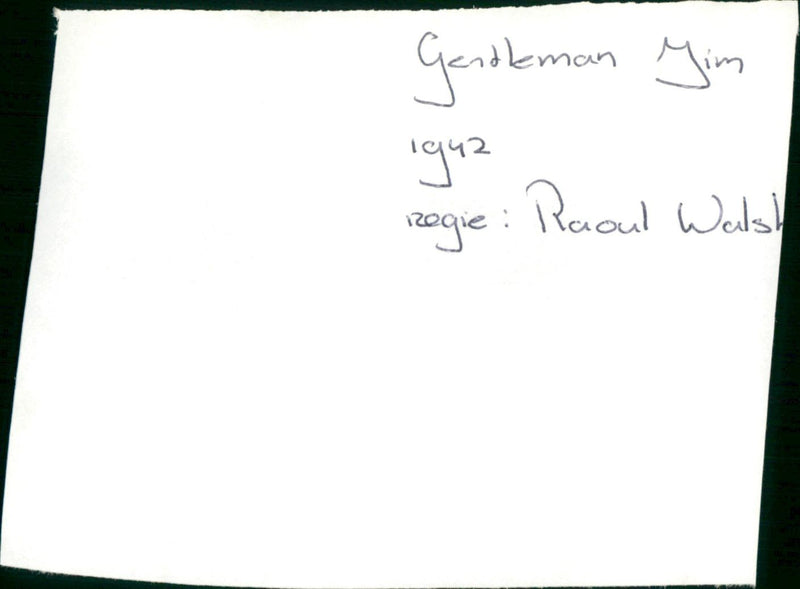 Gentleman Jim
1942
regie: Raoul Walsh